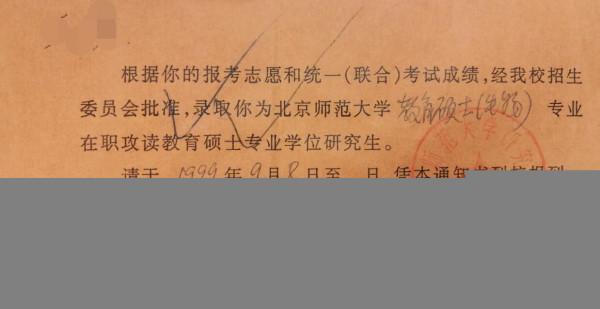 根据你的报考志愿和统一(联合)考试成绩,经我校招生
委员会批准,录取你为北京师范大学 教育硕士(生物) 专业
在职攻读教育硕士专业学位研究生。
请于 1999 年 9 月 8 日至 日 凭本通知书到校报到
范大学研究